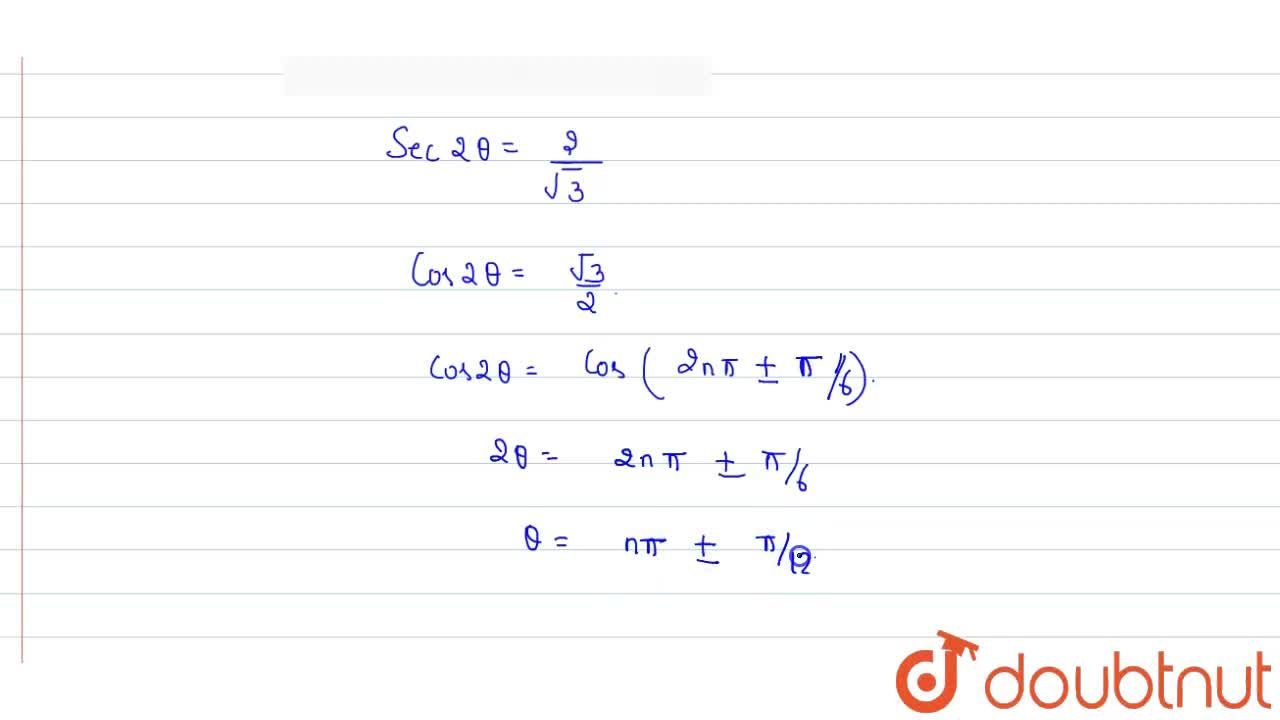 Sec 2θ = 2/√3
Cos 2θ = √3/2
Cos 2θ = Cos ( 2nπ ± π/6 ).
2θ = 2nπ ± π/6
θ = nπ ± π/12.
doubtnut